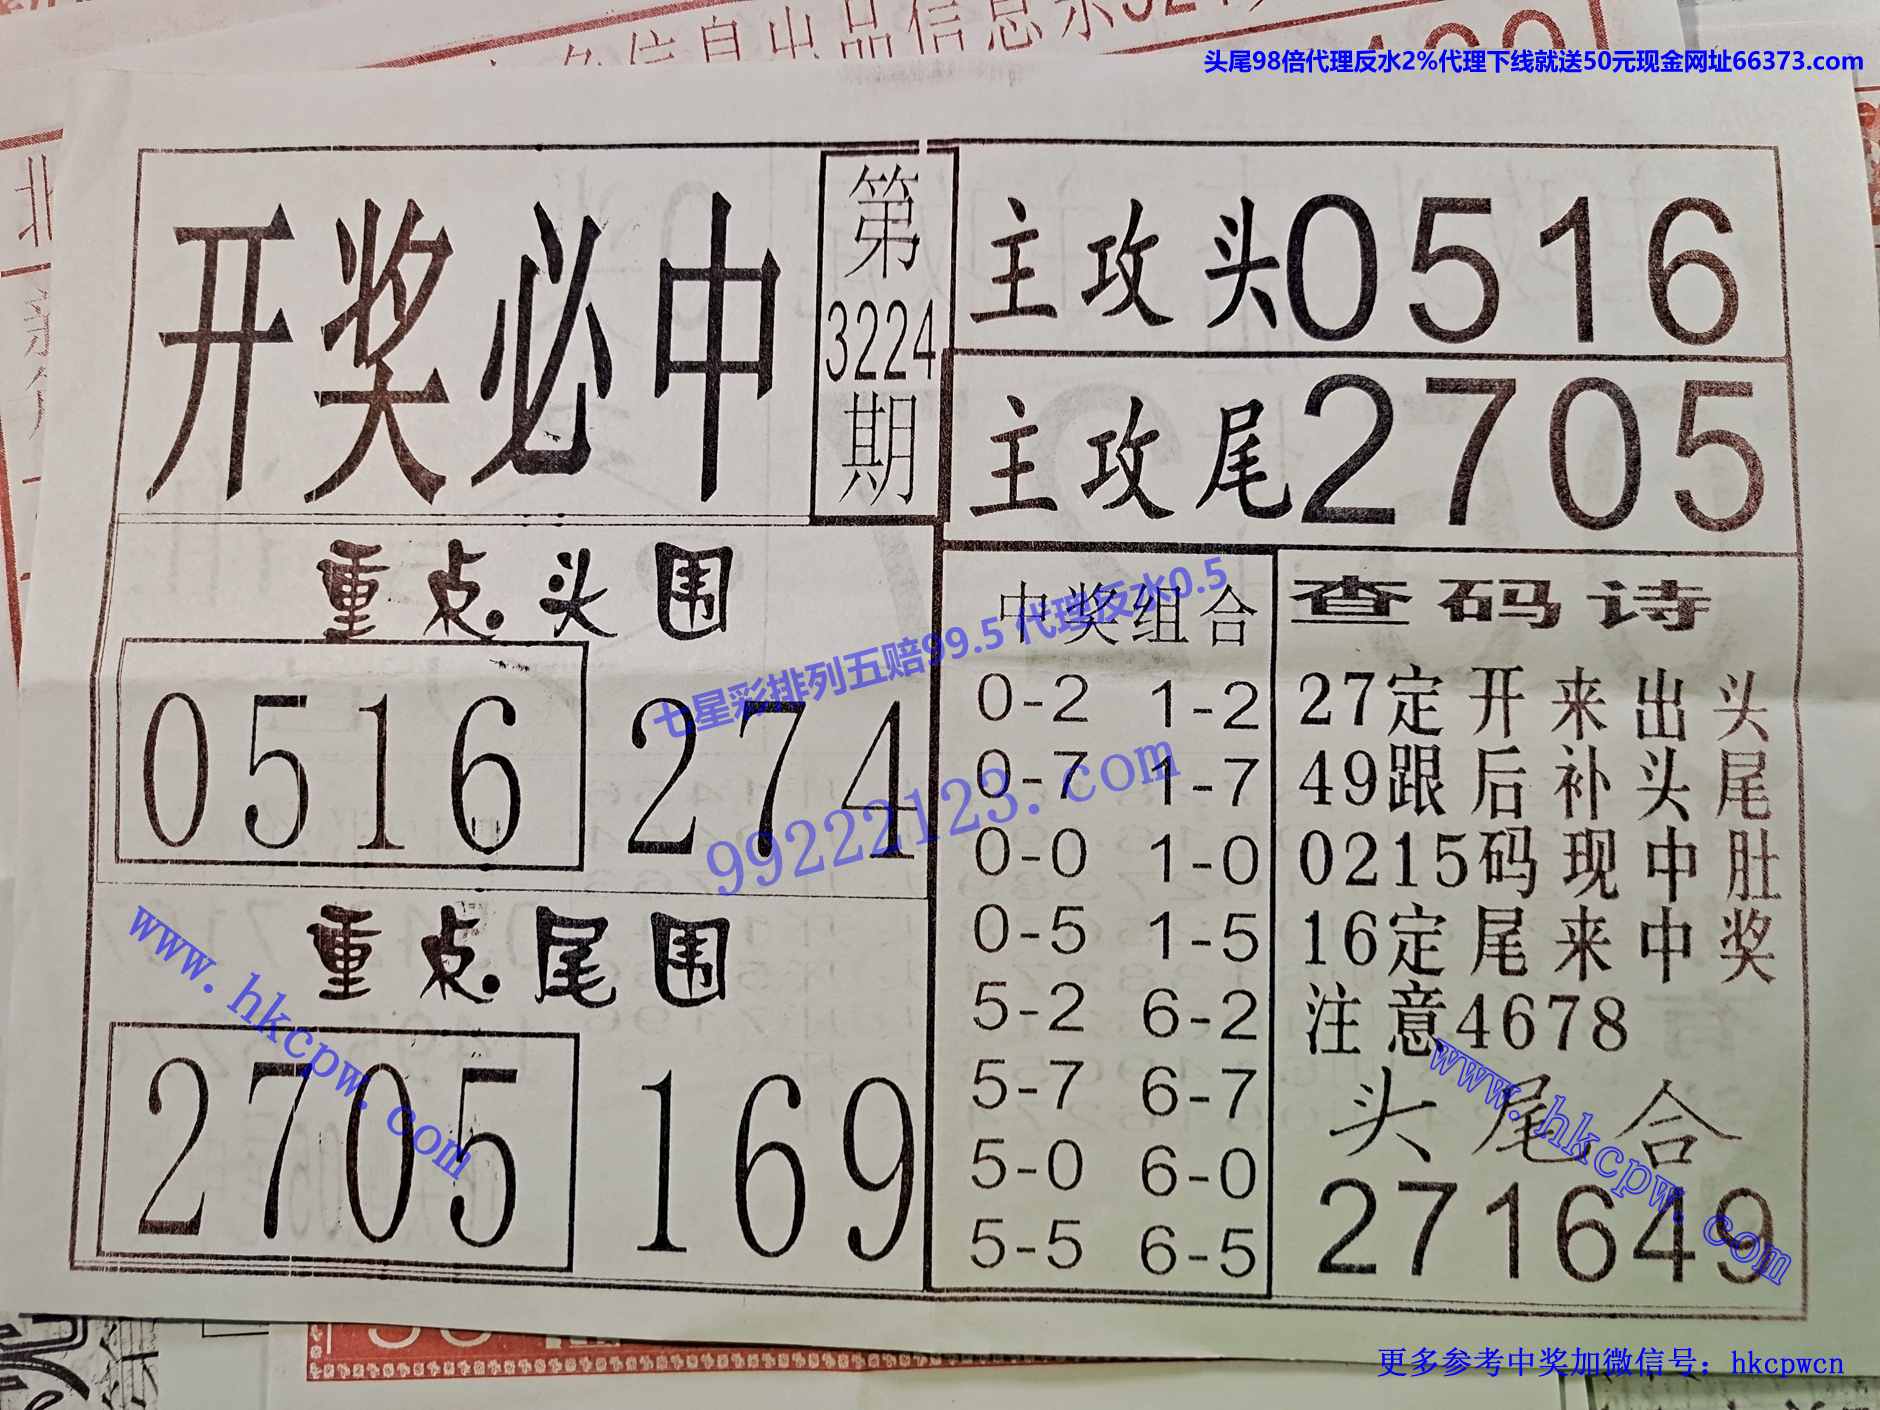 头尾98倍代理反水2%代理下线就送50元现金网址66373.com
开奖必中
第
3224
期
主攻头0516
主攻尾2705
重点头围
0516 274
重点尾围
2705 169
中奖组合
0-2 1-2
0-7 1-7
0-0 1-0
0-5 1-5
5-2 6-2
5-7 6-7
5-0 6-0
5-5 6-5
查码诗
27定开来出头
49跟后补头尾
0215码现中肚
16定尾来中奖
注意4678
头尾合
271649
七星彩排列五赔99.5 代理反水0.5
99222123.com
www.hkcpw.com
www.hkcpw.com
更多参考中奖加微信号：hkcpwcn